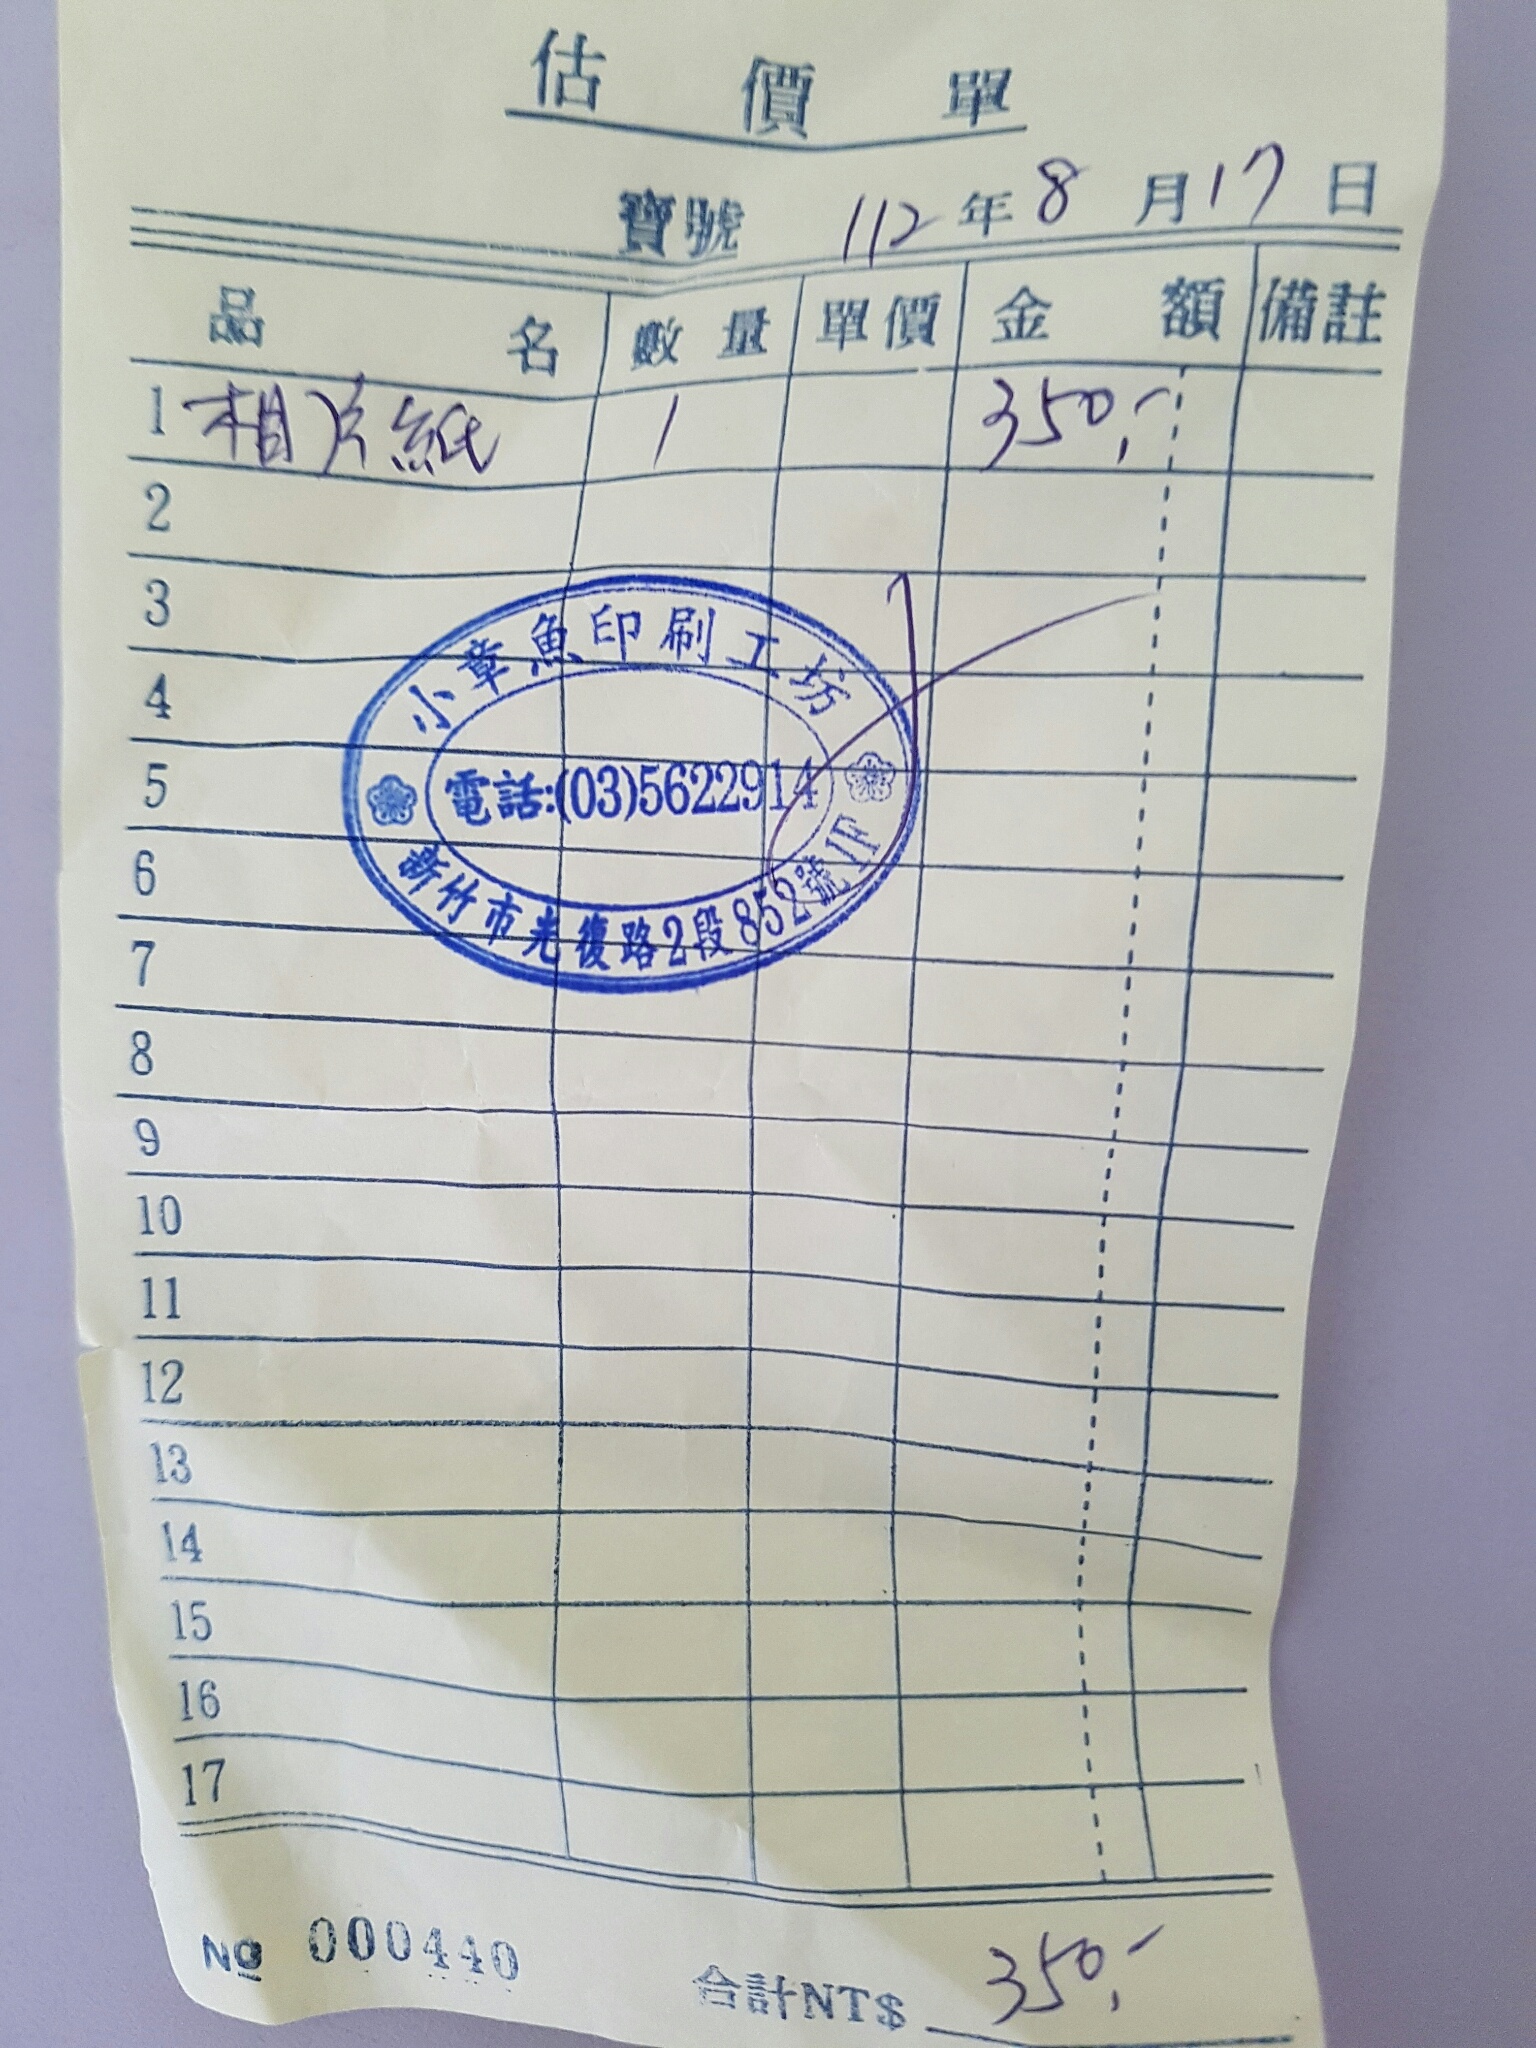 估價單
寶號 112年8月17日
品名 數量 單價 金額 備註
1 相片紙 1 350,-
2
3
4
5
6
7
8
9
10
11
12
13
14
15
16
17
小章魚印刷工坊
電話:(03)5622914
新竹市光復路2段852號1F
№ 000440
合計NT$ 350,-